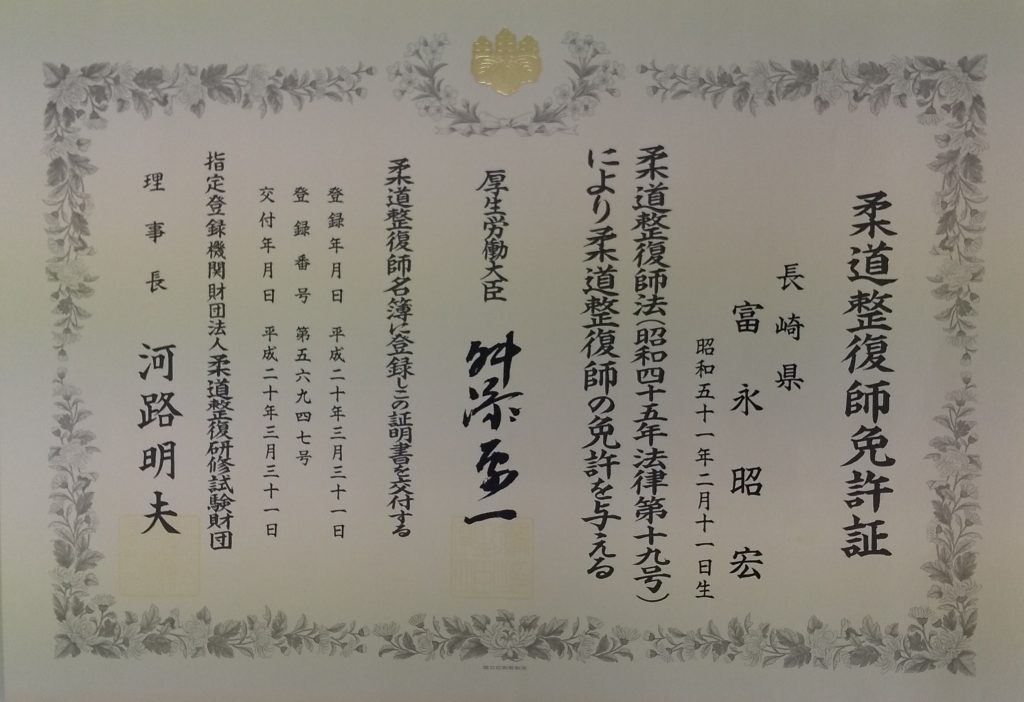 柔道整復師免許証
長崎県
富永昭宏
昭和五十一年二月十一日生
柔道整復師法(昭和四十五年法律第十九号)
により柔道整復師の免許を与える
厚生労働大臣 舛添要一
柔道整復師名簿に登録しこの証明書を交付する
登録年月日 平成二十年三月三十一日
登録番号 第五六九四七号
交付年月日 平成二十年三月三十一日
指定登録機関財団法人柔道整復研修試験財団
理事長 河路明夫